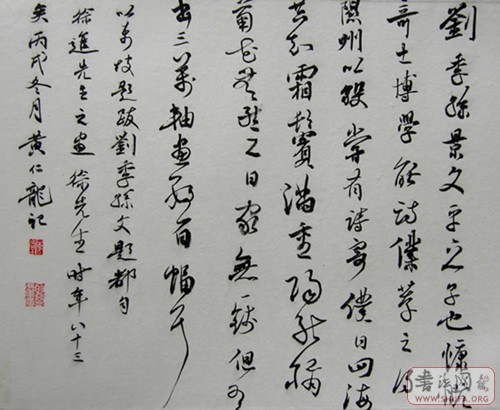 劉季孫景文平之子也慷慨
奇士博学能詩僕荐之得
隰州以殁嘗有詩寄僕曰四海
共知霜鬢满重陽能插
菊花無死之日家無一錢但有
書三萬軸畫数百幅耳
以東坡題跋劉季孫文題都匀
徐進先生之畫徐先生时年八十三
矣丙戌冬月黄仁龍记
书法国报
WWW.SHUFA.ORG